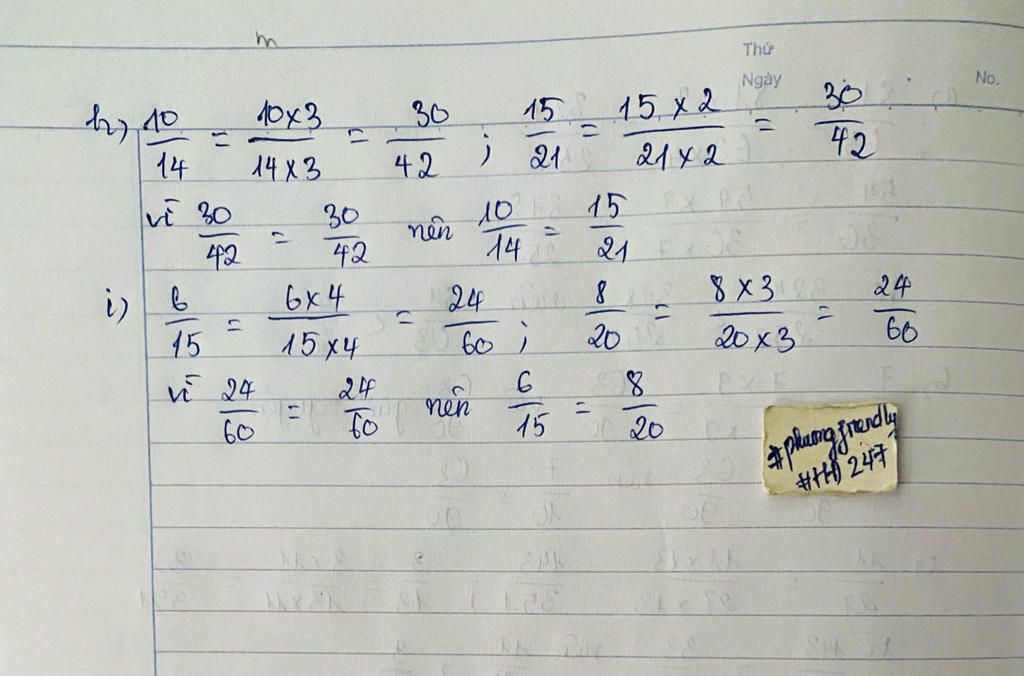 m
Thứ
Ngày
No.
h) 10/14 = 10×3/14×3 = 30/42 ; 15/21 = 15×2/21×2 = 30/42
vì 30/42 = 30/42 nên 10/14 = 15/21
i) 6/15 = 6×4/15×4 = 24/60 ; 8/20 = 8×3/20×3 = 24/60
vì 24/60 = 24/60 nên 6/15 = 8/20
#phuongfriendly
247